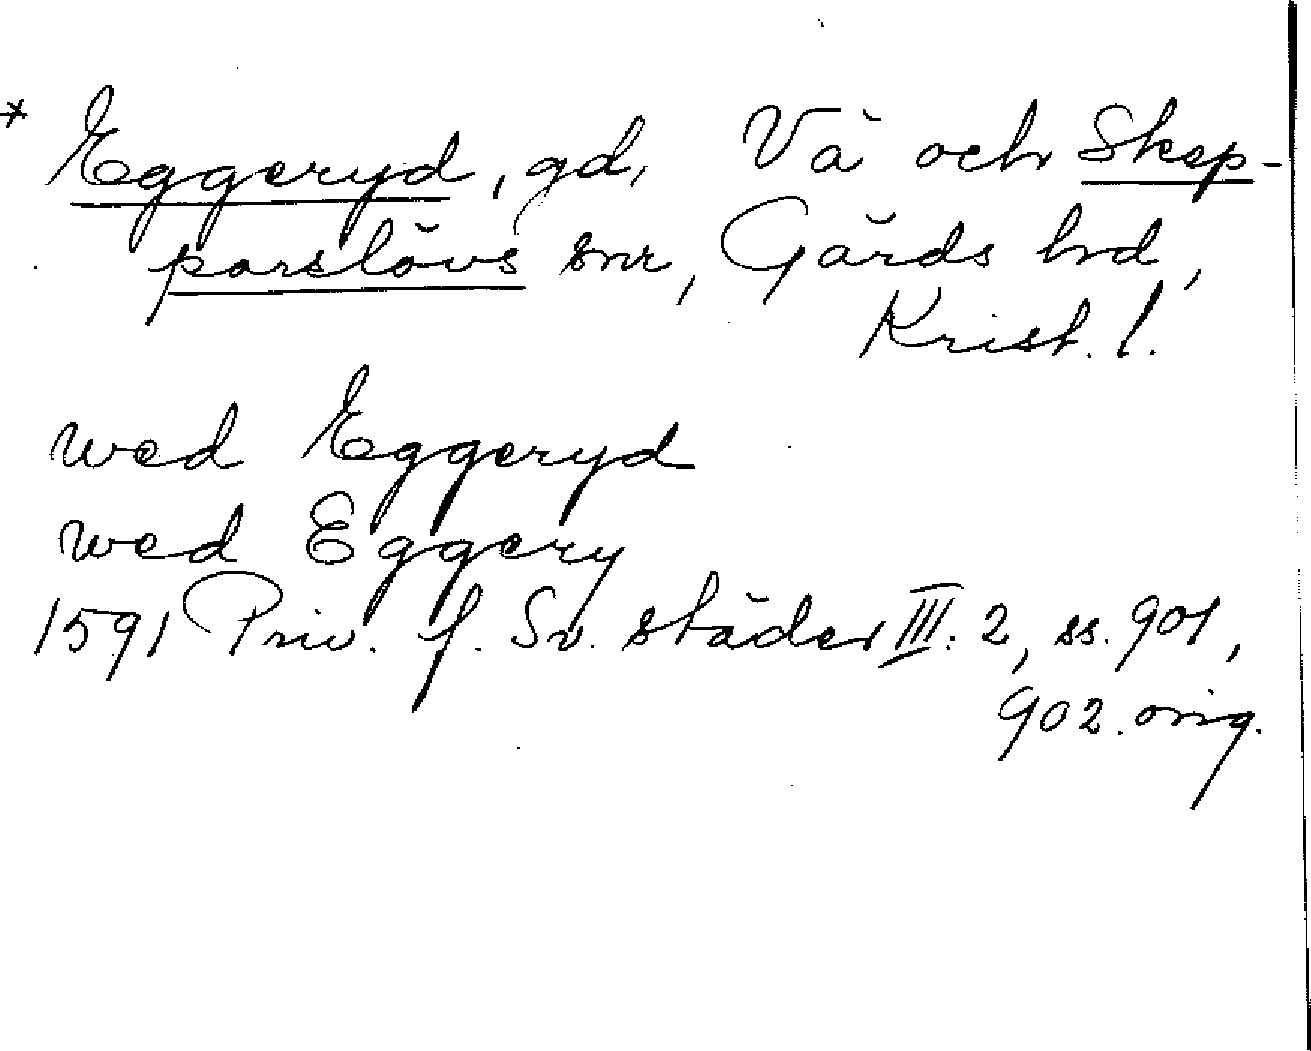 * Eggeryd, gd, Vä och Skep-
parslövs snr, Gärds hd,
Krist. l.
wed Eggeryd
wed Eggery
1591 Priv. f. Sv. städer III: 2, ss. 901,
902. orig.